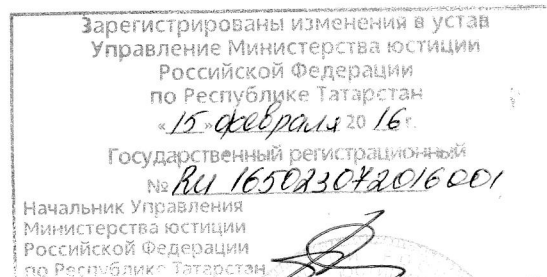 Зарегистрированы изменения в устав
Управление Министерства юстиции
Российской Федерации
по Республике Татарстан
«15» февраля 2016г.
Государственный регистрационный
№ RU 165023072016001
Начальник Управления
Министерства юстиции
Российской Федерации
по Республике Татарстан